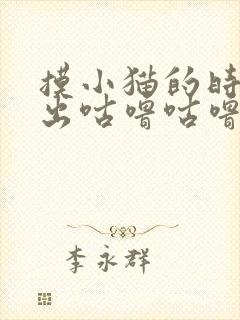 摸小猫的时
出咕噜咕噜
李永群